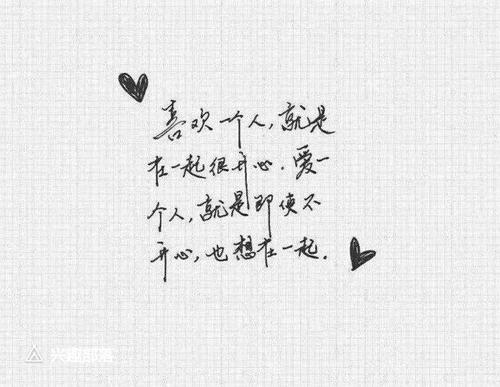 喜欢一个人，就是
在一起很开心．爱一
个人，就是即使不
开心，也想在一起．
兴趣部落